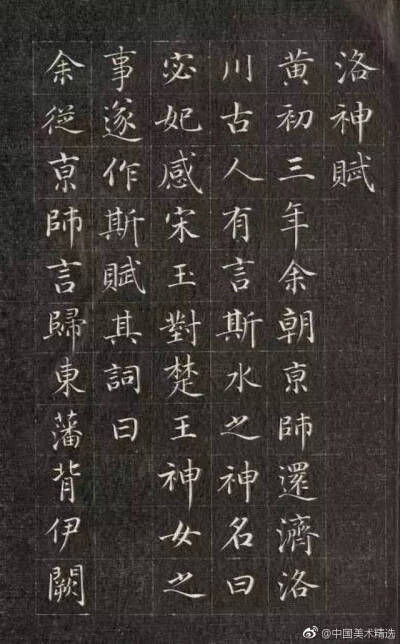 洛神賦
黄初三年余朝京師還濟洛
川古人有言斯水之神名曰
宓妃感宋玉對楚王神女之
事遂作斯賦其詞曰
余從京師言歸東藩背伊闕
@中国美术精选